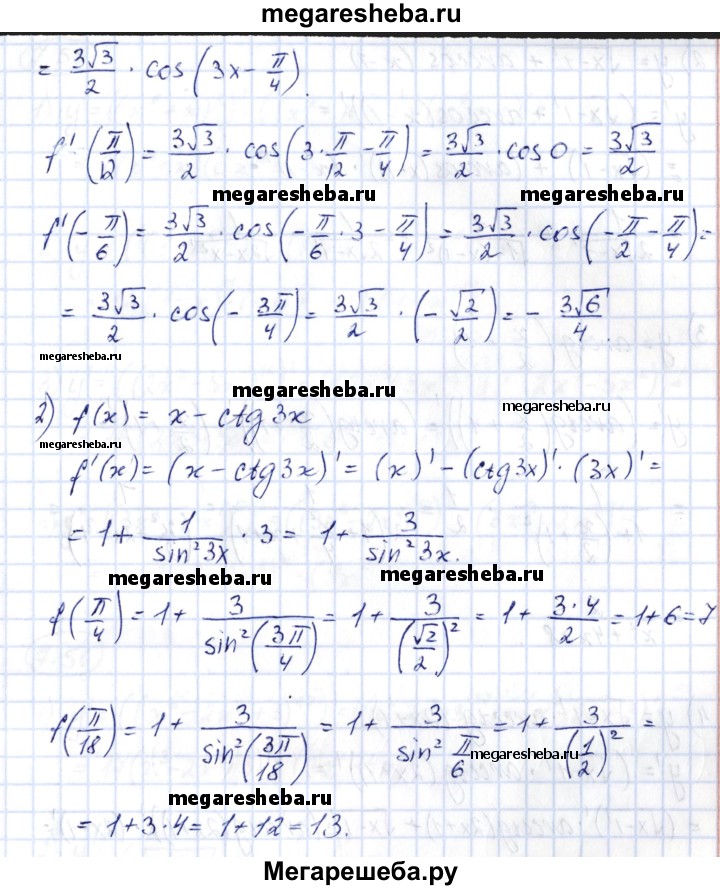 megaresheba.ru
= 3√3/2 · cos(3x − π/4).
f'(π/12) = 3√3/2 · cos(3 · π/12 − π/4) = 3√3/2 · cos 0 = 3√3/2
megaresheba.ru megaresheba.ru
f'(−π/6) = 3√3/2 · cos(−π/6 · 3 − π/4) = 3√3/2 · cos(−π/2 − π/4) =
= 3√3/2 · cos(−3π/4) = 3√3/2 · (−√2/2) = −3√6/4.
megaresheba.ru
megaresheba.ru megaresheba.ru
2) f(x) = x − ctg 3x
megaresheba.ru
f'(x) = (x − ctg 3x)' = (x)' − (ctg 3x)' · (3x)' =
= 1 + 1/sin²3x · 3 = 1 + 3/sin²3x.
megaresheba.ru megaresheba.ru
f(π/4) = 1 + 3/sin²(3π/4) = 1 + 3/(√2/2)² = 1 + 3·4/2 = 1 + 6 = 7
f(π/18) = 1 + 3/sin²(3π/18) = 1 + 3/sin² π/6 = 1 + 3/(1/2)² =
megaresheba.ru
megaresheba.ru
= 1 + 3 · 4 = 1 + 12 = 13.
Мегарешеба.ру